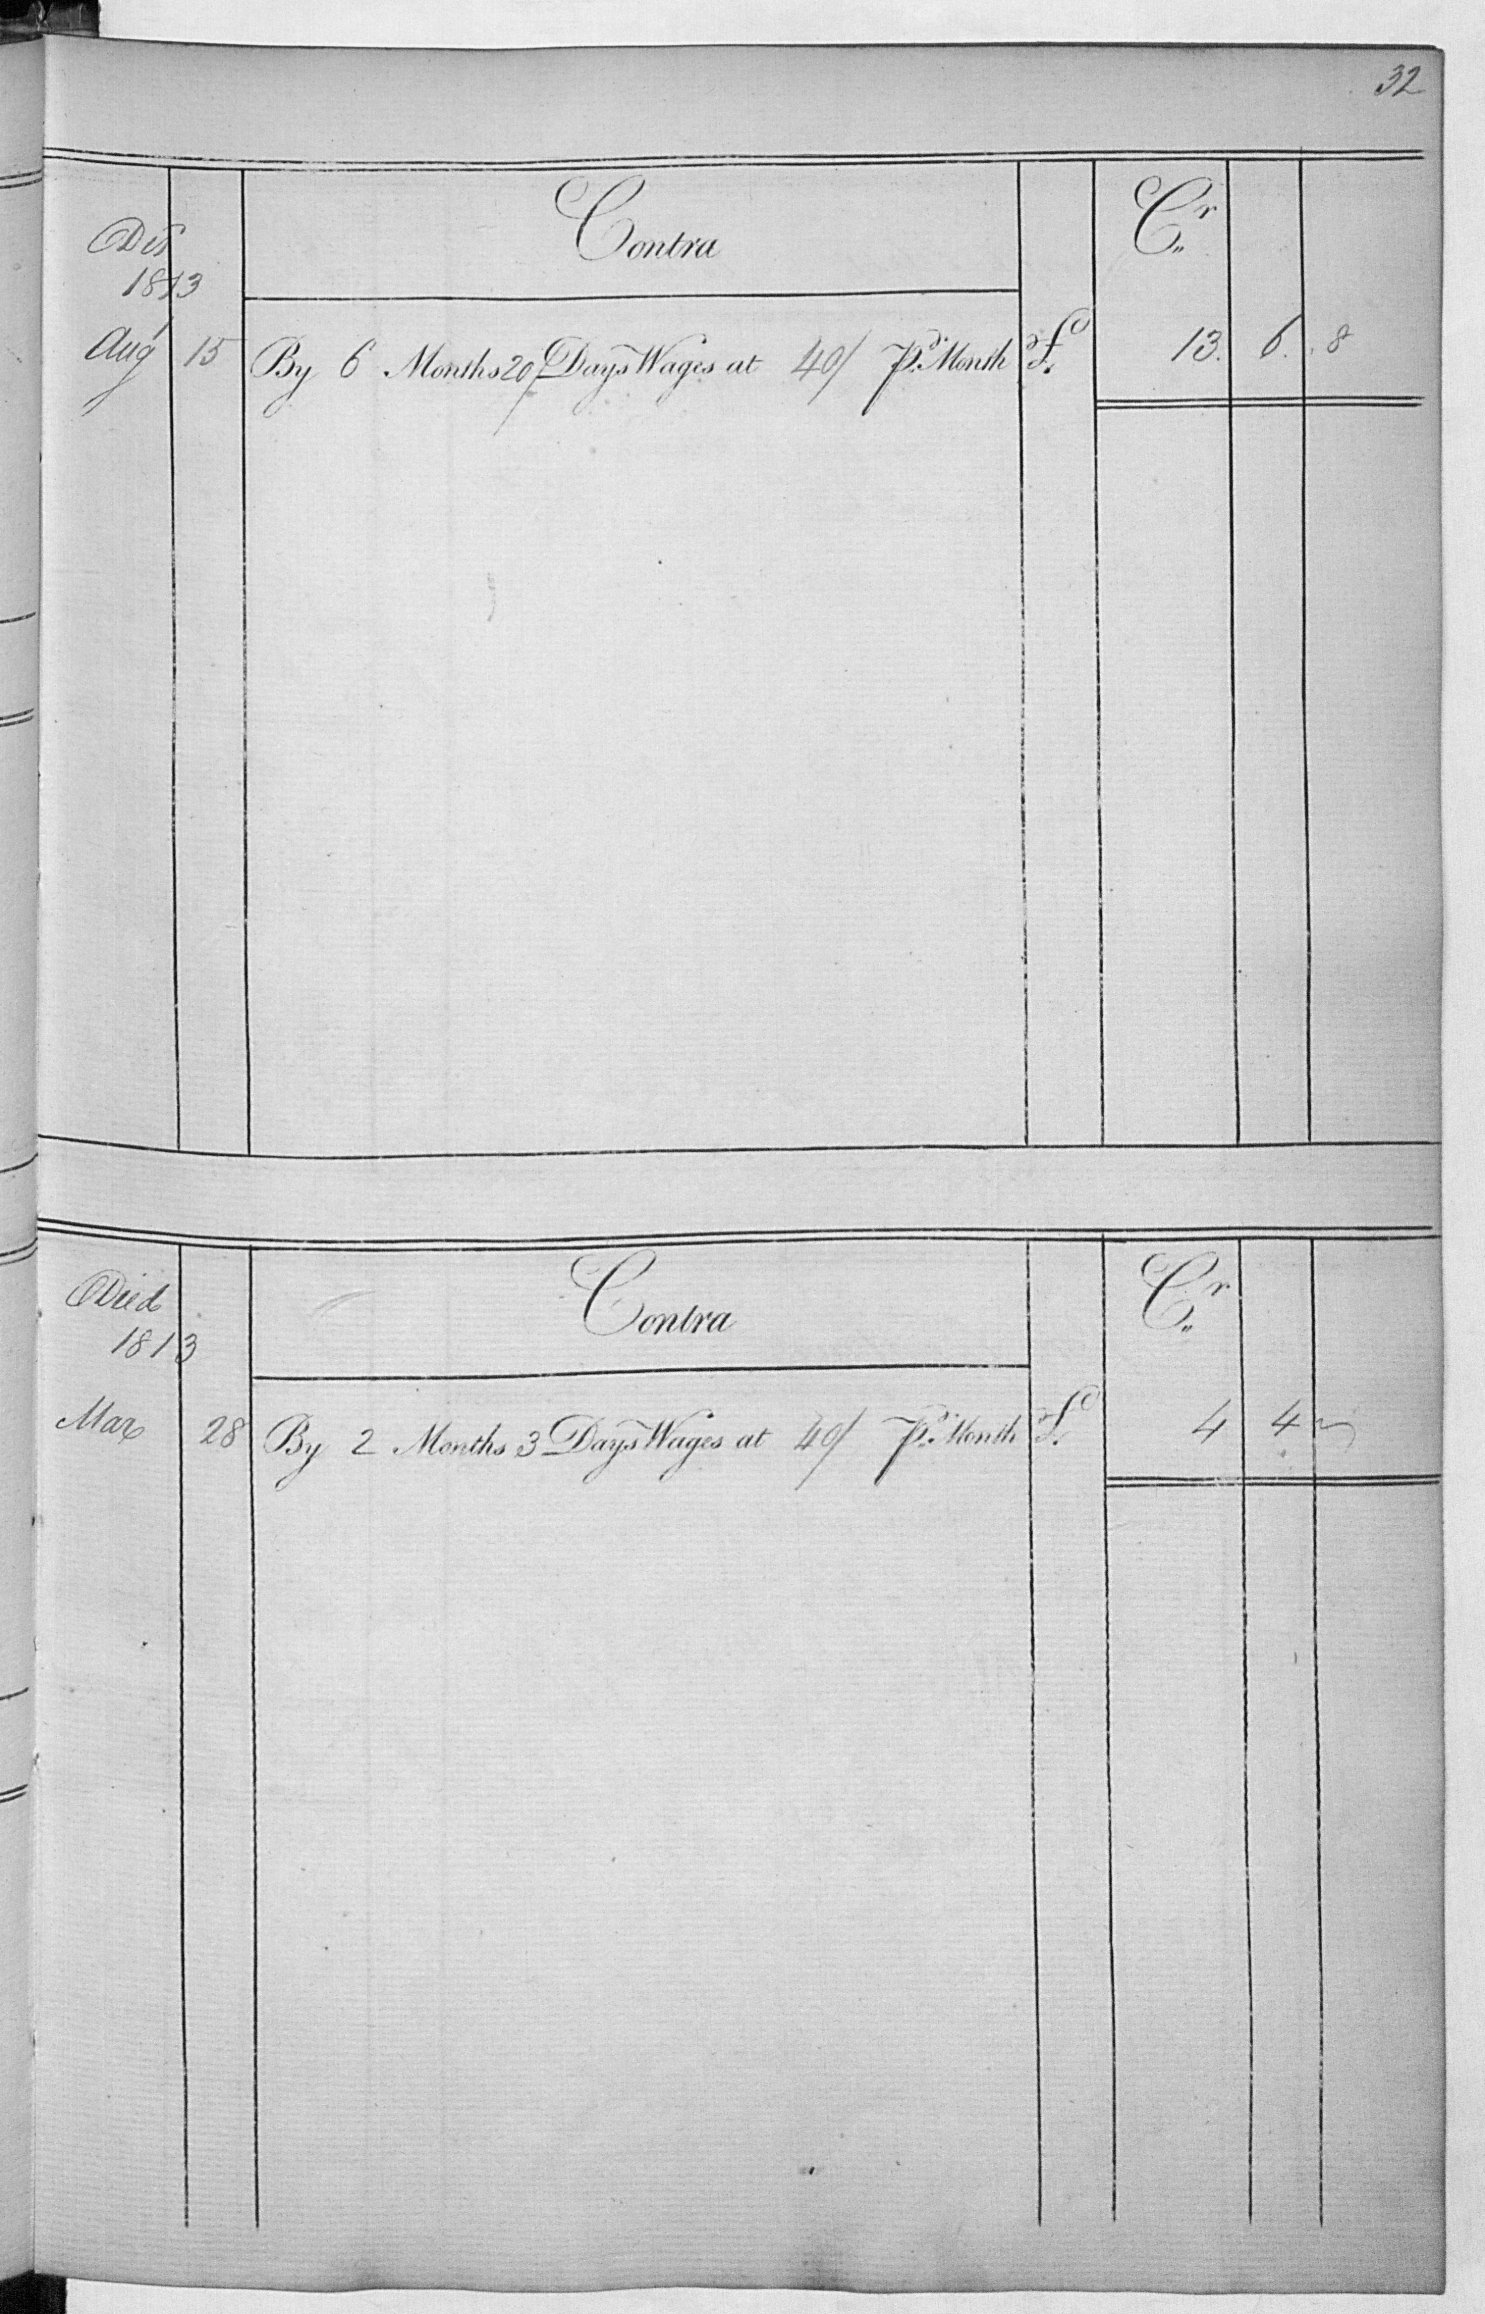 32
Contra Cr
Dis
1813
Aug 15 By 6 Months 20 Days Wages at 40/ Pr. Month £ 13. 6. 8
Contra Cr
Died
1813
Mar 28 By 2 Months 3 Days Wages at 40/ Pr. Month £ 4 4 ~